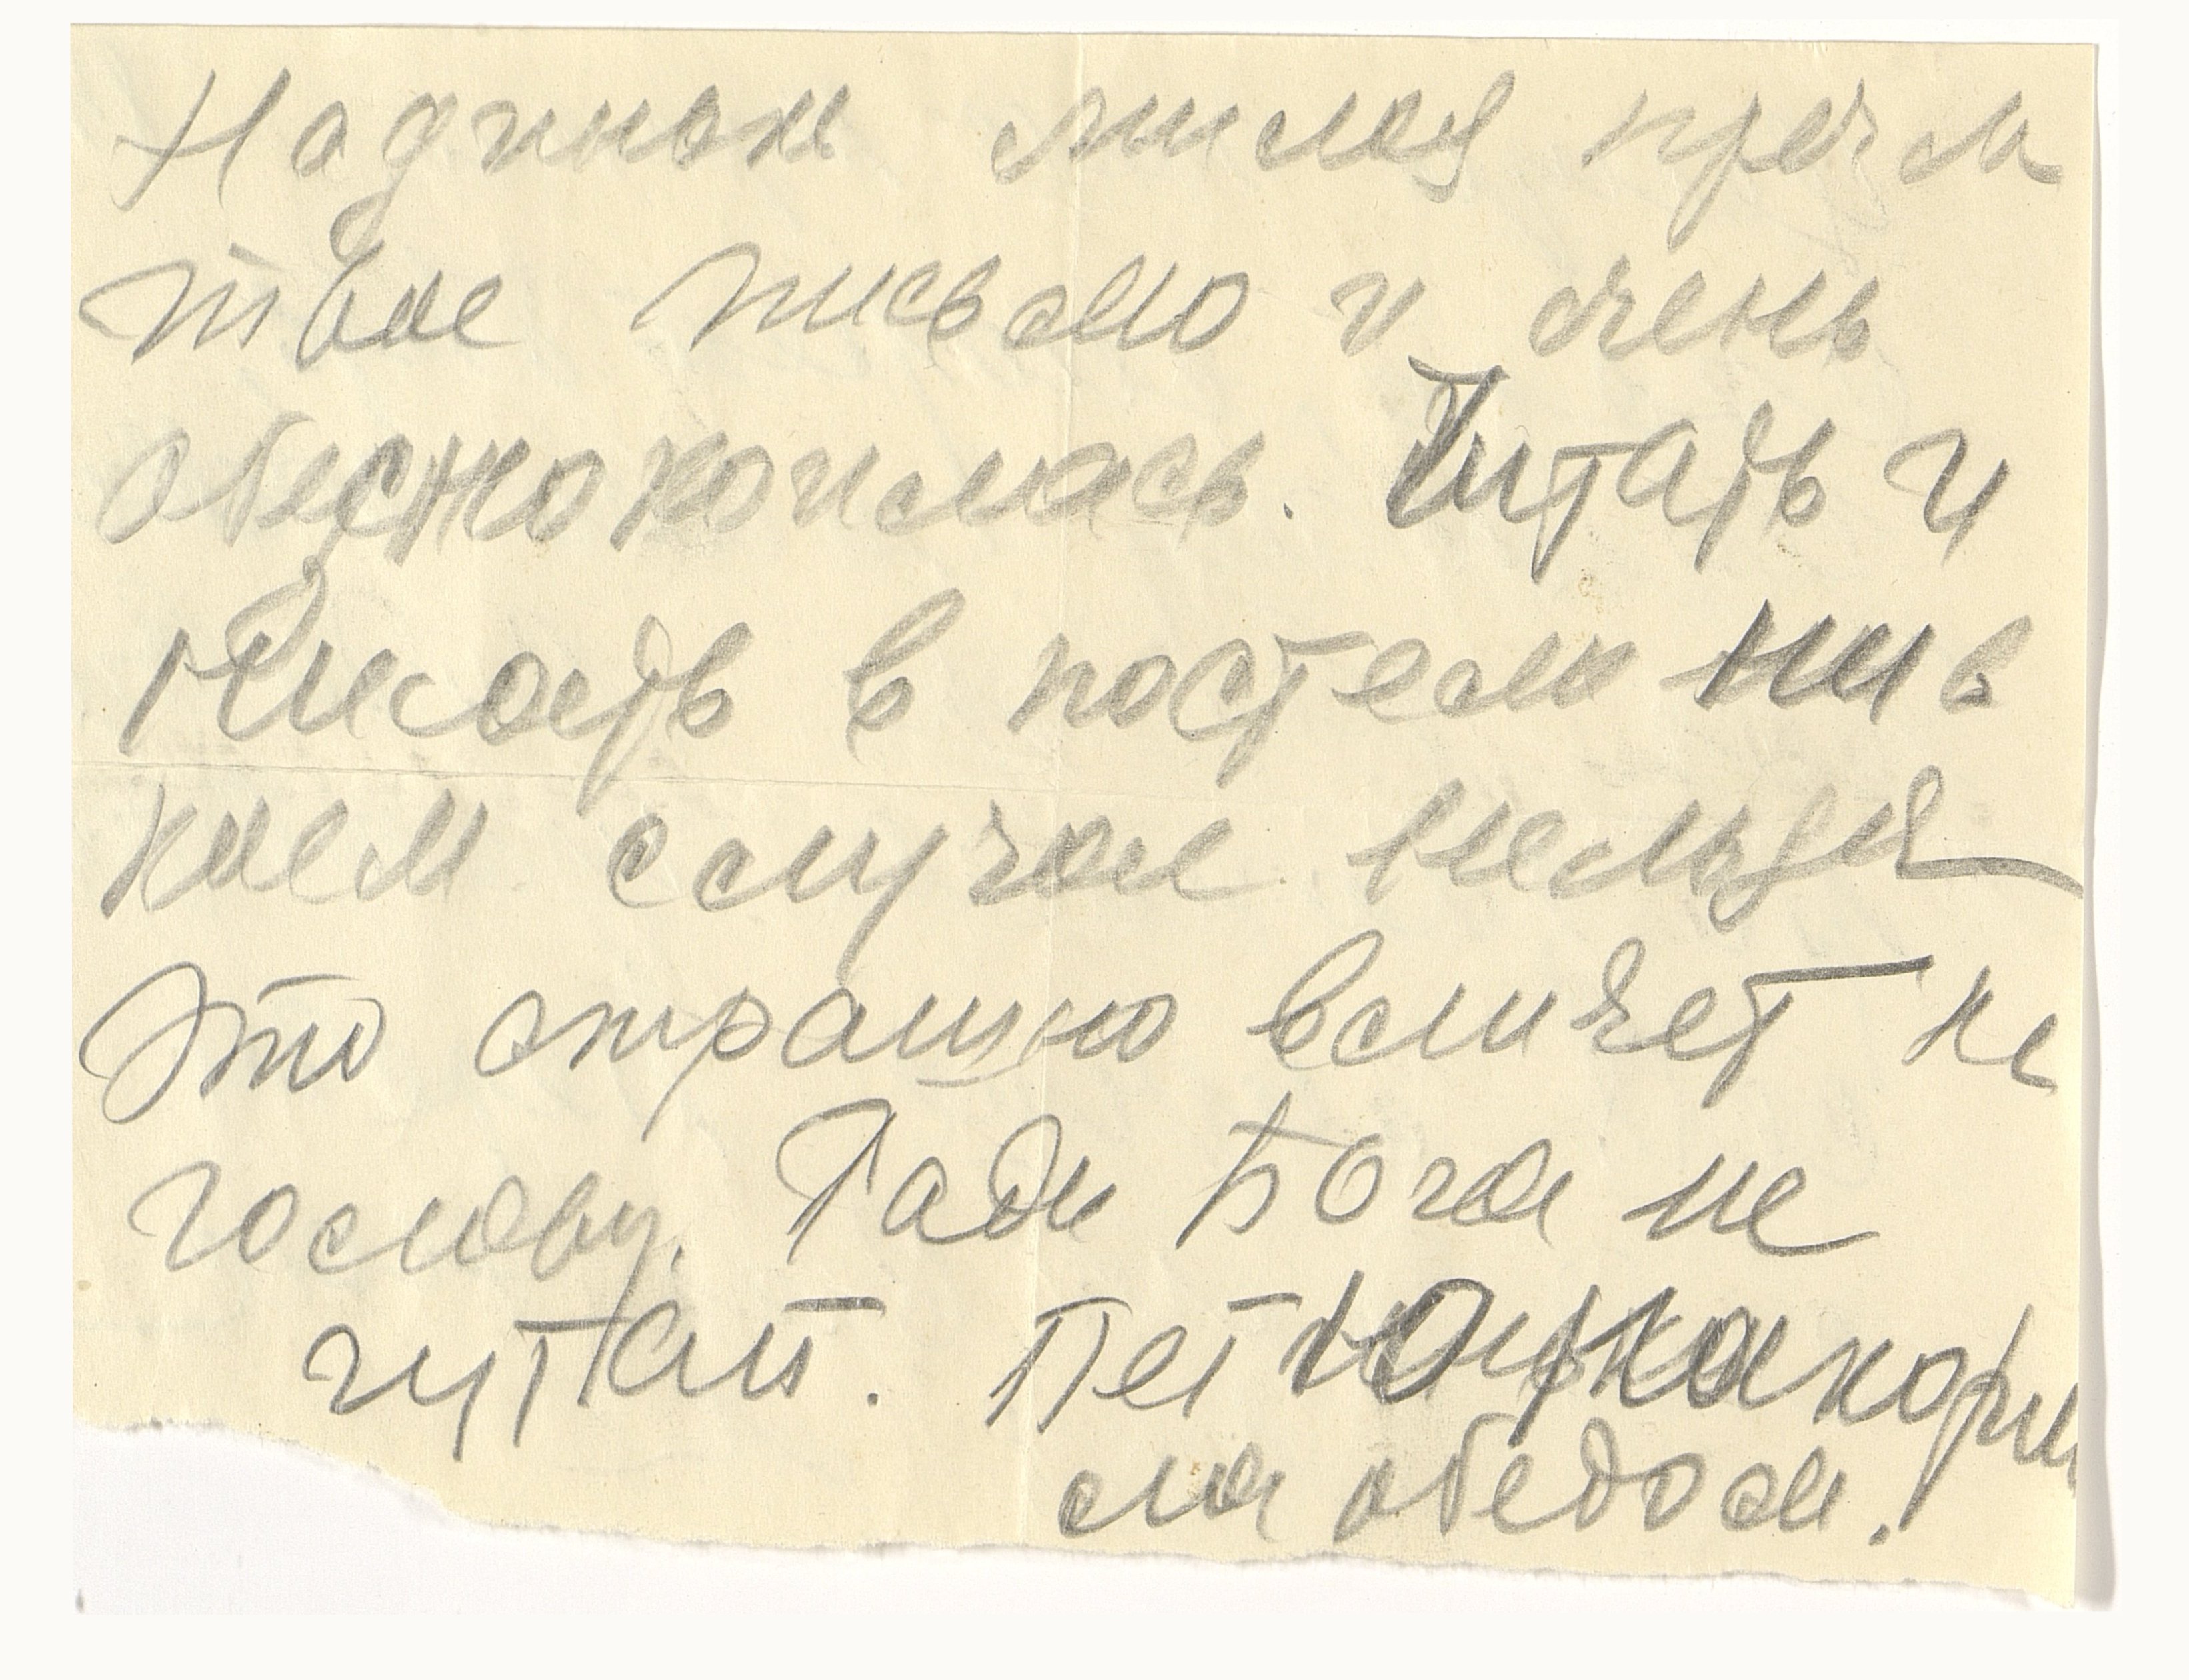 Надинька милая проч ла
твое письмо и очень
обеспокоилась. Читать и
писать в постели ни в
коем случае нельзя
Это страшно влияет на
голову. Ради Бога не
читай. Петюшка корми
ла обедом.